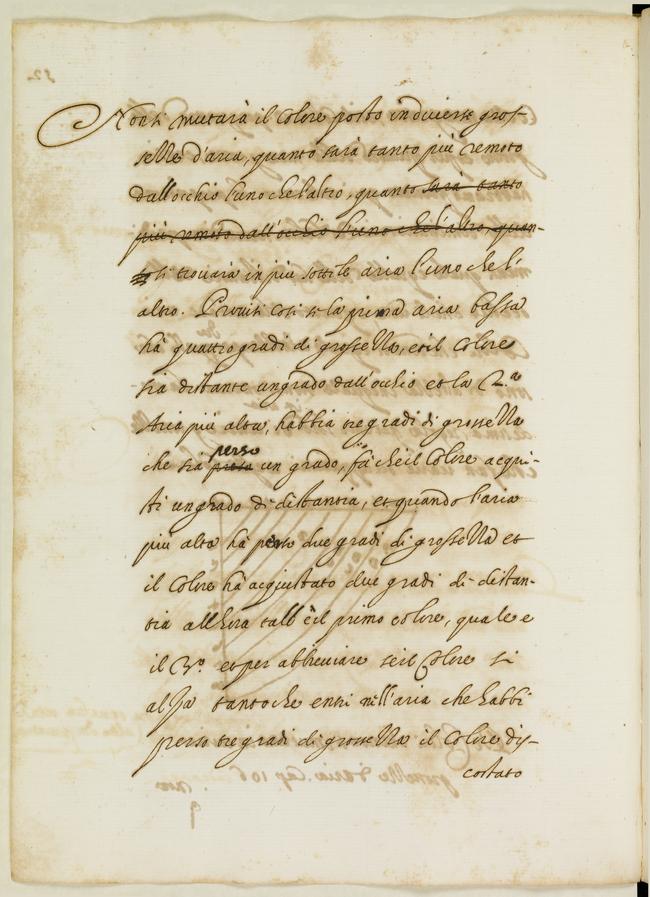 Non si mutarà il colore posto in diverse gros-
sezze d'aria, quanto sarà tanto più remoto
dall'occhio l'uno che l'altro, quanto sarà tanto
più remoto dall'occhio l'uno che l'altro, quan-
to si trovarà in più sottile aria l'uno che l'
altro. Provisi così se la prima aria bassa
hà quattro gradi di grossezza, et il colore
sia distante un grado dall'occhio et la 2.ª
Aria più alta, habbia tre gradi di grossezza
che sia perso un grado, fà che il colore acqui-
sti un grado di distantia, et quando l'aria
più alta hà perso due gradi di grossezza et
il colore hà acquistato due gradi di distan-
tia allhora tall'è il primo colore, quale e
il 3.º et per abbreviare se il Colore si
alza tanto che entri nell'aria che habbi
perso tre gradi di grossezza il colore dis-
costato